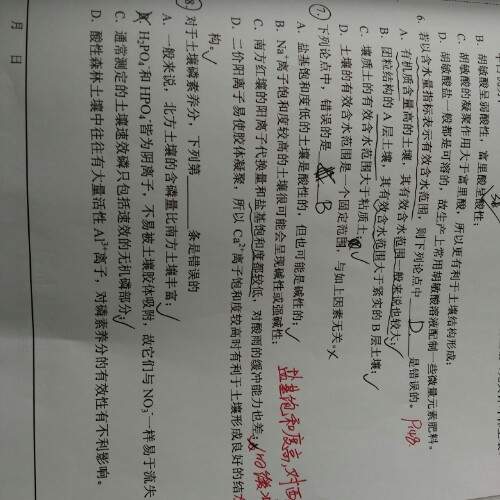 B. 胡敏酸呈弱酸性，富里酸呈酸性；
C. 胡敏酸的凝聚作用大于富里酸，所以更有利于土壤结构形成；
D. 胡敏酸盐一般都是可溶的，故生产上常用胡敏酸溶液配制一些微量元素肥料。
6. 若以含水量指标表示有效含水范围，则下列论点中 D 是错误的。
A. 有机质含量高的土壤，其有效含水范围一般来说也较大；
B. 团粒结构的 A 层土壤，其有效含水范围大于紧实的 B 层土壤；
C. 壤质土的有效含水范围大于粘质土；
D. 土壤的有效含水范围是一个固定范围，与如上因素无关。
7. 下列论点中，错误的是 B
A. 盐基饱和度低的土壤是酸性的，但也可能是碱性的；
B. Na⁺离子饱和度较高的土壤很可能会呈现碱性或强碱性；
盐基饱和度高，对
C. 南方红壤的阳离子代换量和盐基饱和度都较低，对酸雨的缓冲能力也差；
D. 二价阳离子易使胶体凝聚，所以 Ca²⁺离子饱和度较高时有利于土壤形成良好的结
构。
8. 对于土壤磷素养分，下列第 条是错误的
A. 一般来说，北方土壤的含磷量比南方土壤丰富；
B. H₂PO₄⁻和 HPO₄⁼皆为阴离子，不易被土壤胶体吸附，故它们与 NO₃⁻一样易于流失
C. 通常测定的土壤速效磷只包括速效的无机磷部分；
D. 酸性森林土壤中往往有大量活性 Al³⁺离子，对磷素养分的有效性有不利影响。
月 日